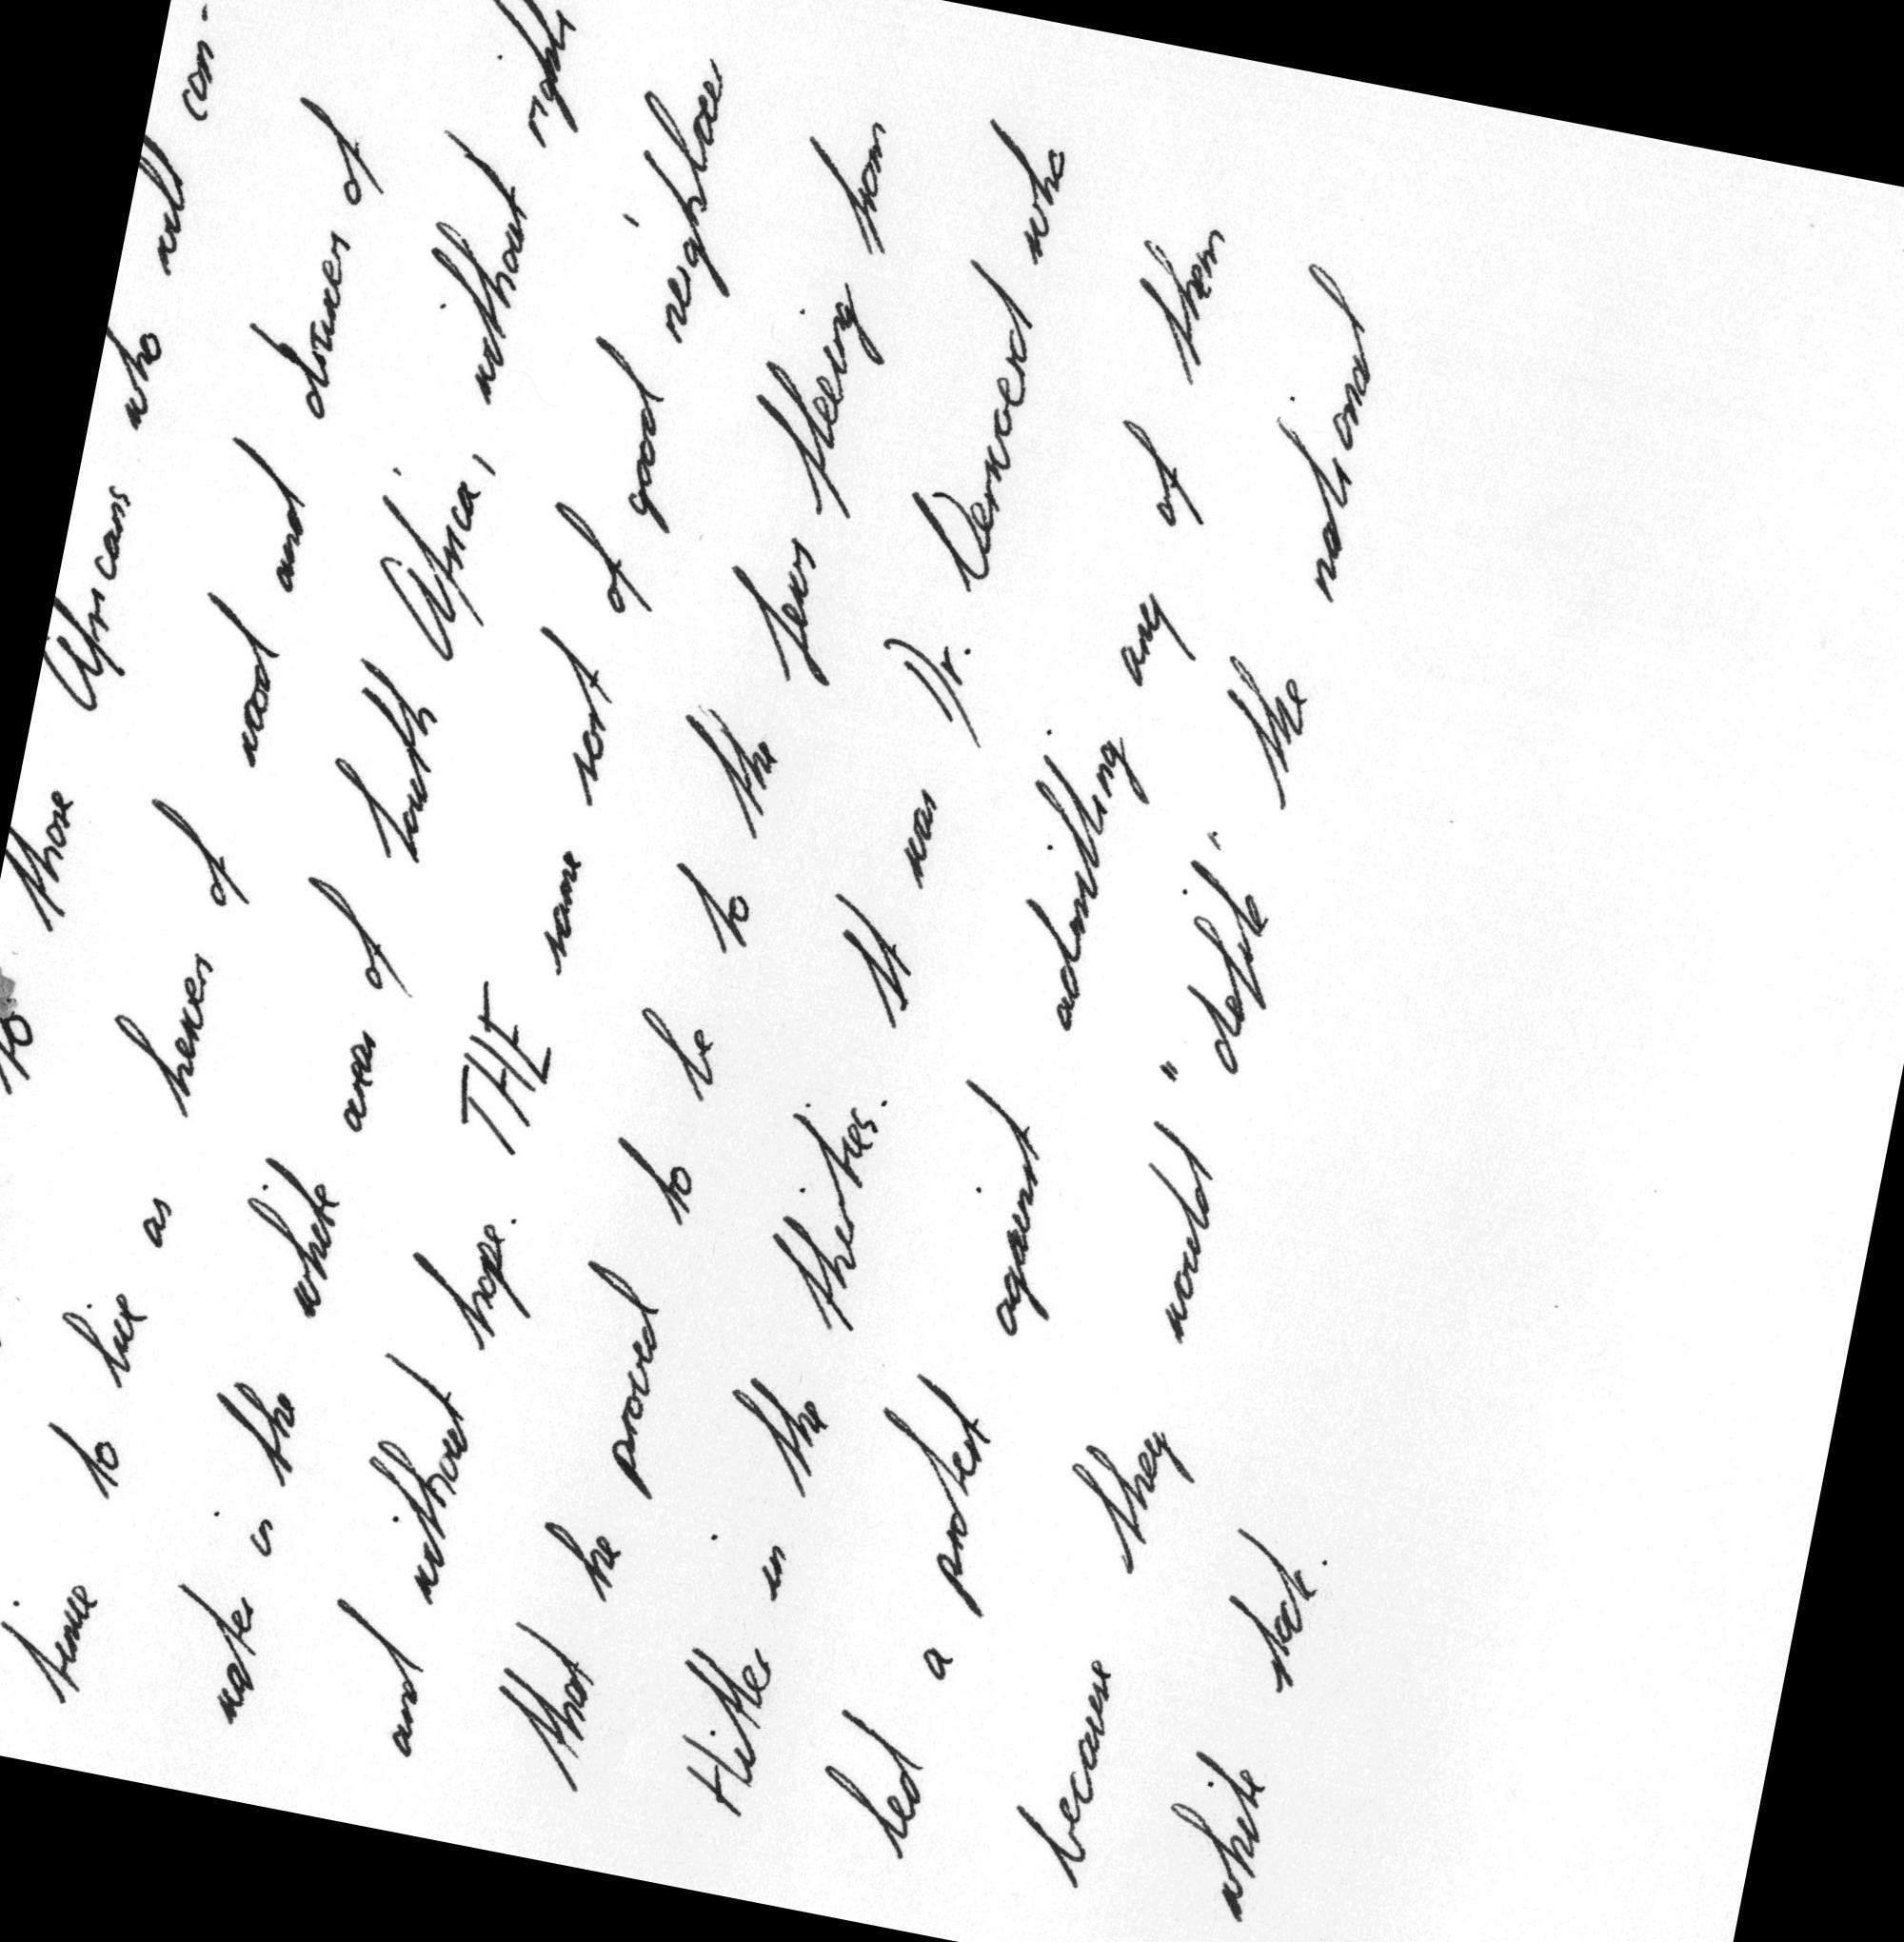 to those Africans who will con-
tinue to live as hewers of wood and drawers of
water in the white areas of South Africa, without rights
and without hope. THE same sort of good neighbour
that he proved to be to the Jews fleeing from
Hitler in the thirties. It was Dr. Verwoerd who
led a protest against admitting any of them
because they would "defile" the national
white stock.